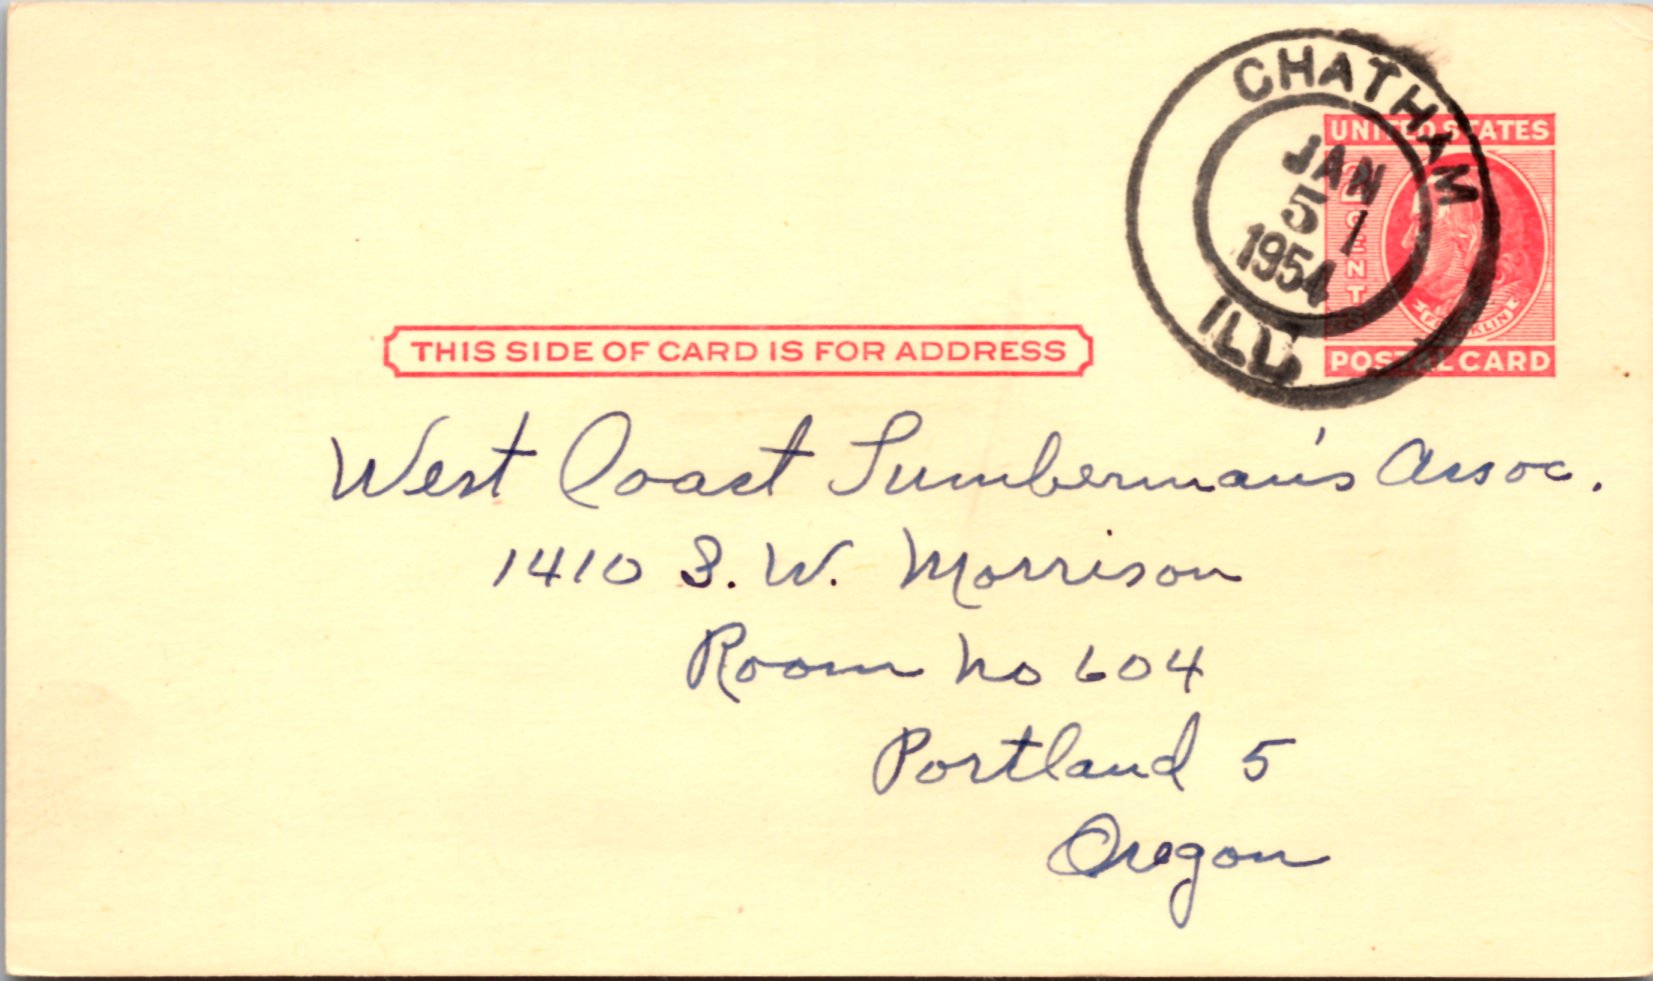 CHATHAM
JAN
5 1
1954
ILL
UNITED STATES
2 CENTS
FRANKLIN
POSTAL CARD
THIS SIDE OF CARD IS FOR ADDRESS
West Coast Lumberman's Assoc.
1410 S. W. Morrison
Room No 604
Portland 5
Oregon